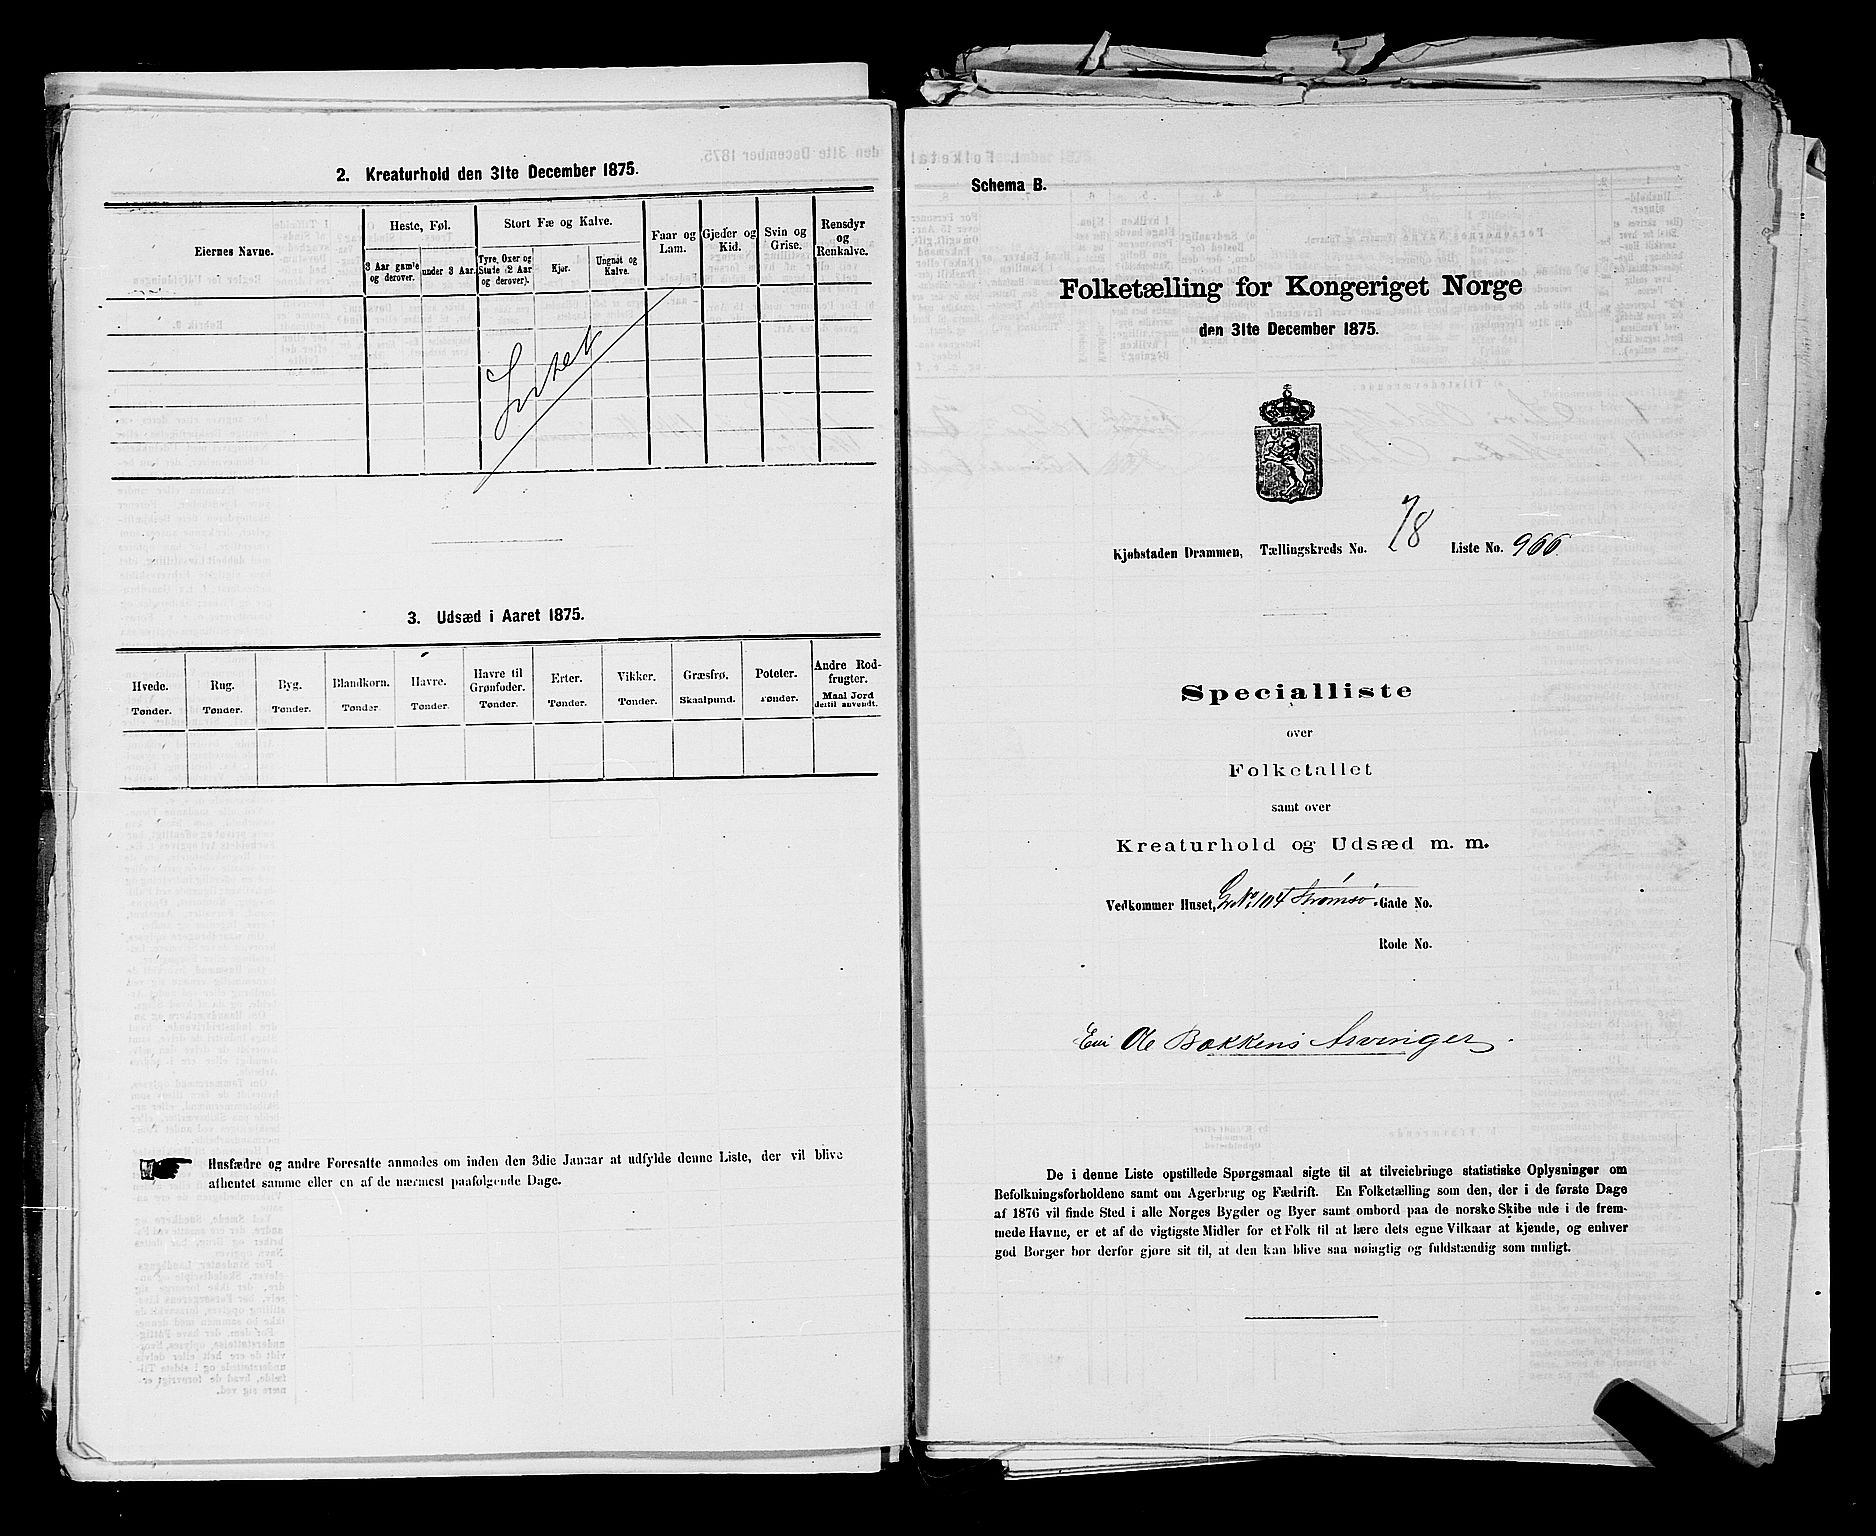 2. Kreaturhold den 31te December 1875.
Eiernes Navne.
Heste, Føl.
3 Aar gamle og derover.
under 3 Aar.
Stort Fæ og Kalve.
Tyre, Oxer og Stude (2 Aar og derover).
Kjør.
Ungnøt og Kalve.
Faar og Lam.
Gjeder og Kid.
Svin og Grise.
Rensdyr og Renkalve.
Intet
3. Udsæd i Aaret 1875.
Hvede. Tønder.
Rug. Tønder.
Byg. Tønder.
Blandkorn. Tønder.
Havre. Tønder.
Havre til Grønfoder. Tønder.
Erter. Tønder.
Vikker. Tønder.
Græsfrø. Skaalpund.
Poteter. Tønder.
Andre Rodfrugter. Maal Jord dertil anvendt.
Husfædre og andre Foresatte anmodes om inden den 3die Januar at udfylde denne Liste, der vil blive
afhentet samme eller en af de nærmest paafølgende Dage.
Schema B.
Folketælling for Kongeriget Norge
den 31te December 1875.
Kjøbstaden Drammen, Tællingskreds No. 78 Liste No. 966
Specialliste
over
Folketallet
samt over
Kreaturhold og Udsæd m. m.
Vedkommer Huset, Gr No 104 Strømsø Gade No.
Rode No.
Eier Ole Bakkens Arvinger.
De i denne Liste opstillede Spørgsmaal sigte til at tilveiebringe statistiske Oplysninger om
Befolkningsforholdene samt om Agerbrug og Fædrift. En Folketælling som den, der i de første Dage
af 1876 vil finde Sted i alle Norges Bygder og Byer samt ombord paa de norske Skibe ude i de frem-
mede Havne, er et af de vigtigste Midler for et Folk til at lære dets egne Vilkaar at kjende, og enhver
god Borger bør derfor gjøre sit til, at den kan blive saa nøiagtig og fuldstændig som muligt.